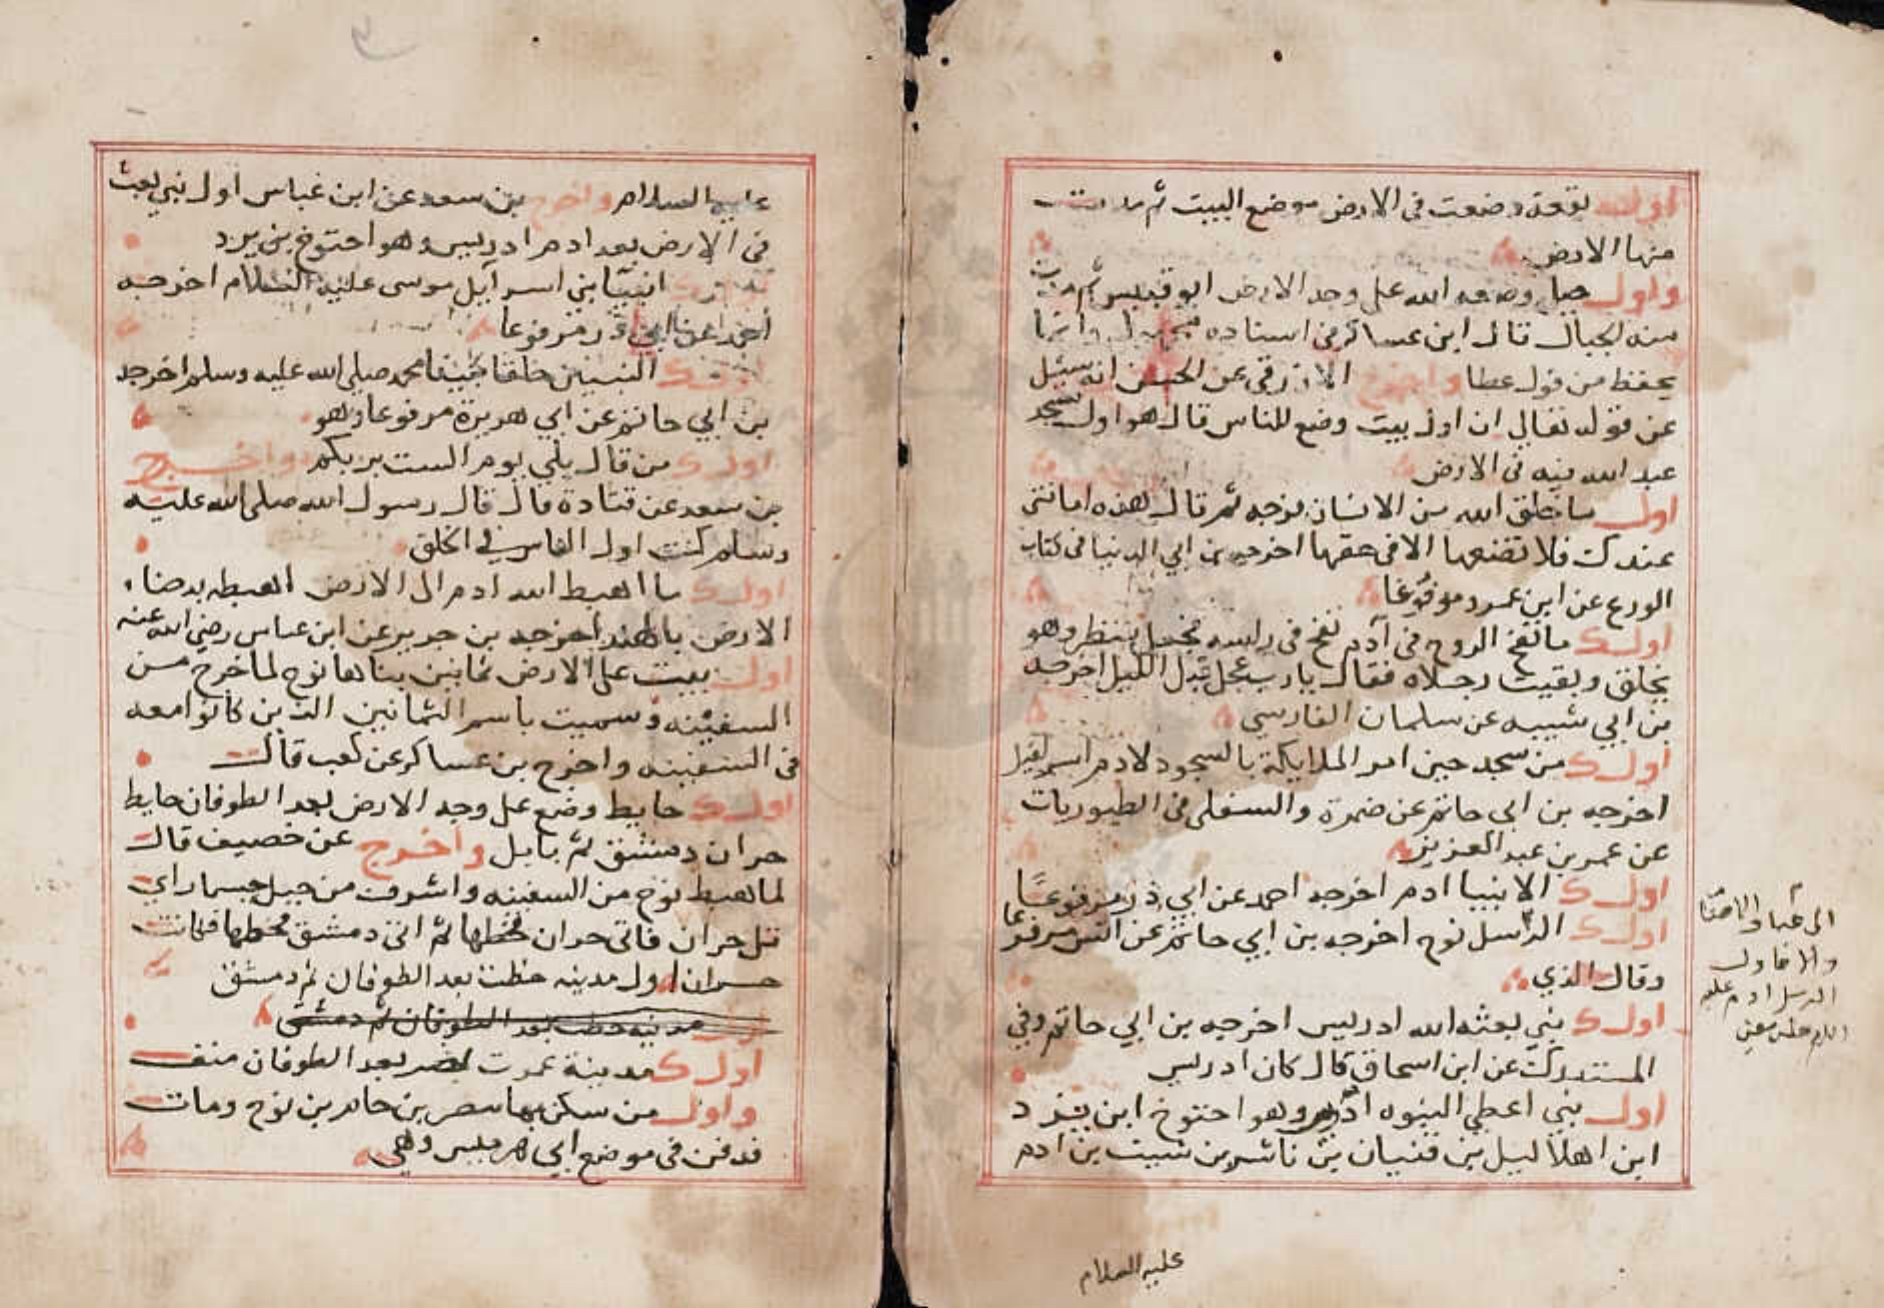 اول بقعة وضعت في الارض موضع البيت ثم مدت
منها الارض
واول جبل وضعه الله على وجه الارض ابو قبيس ثم مدت
منه الجبال قال ابن عساكر في اسناده وانما
يحفظ من قول عطا واخرج الازرقي عن الحسن انه سئل
عن قوله تعالى ان اول بيت وضع للناس قال هو اول مسجد
عبد الله فيه في الارض
اول ما خلق الله من الانسان فرجه ثم قال هذه امانتي
عندك فلا تضعها الا في حقها اخرجه بن ابي الدنيا في كتاب
الورع عن ابن عمرو موقوفا
اول ما نفخ الروح في آدم نفخ في راسه فجعل ينظر وهو
يخلق وبقيت رجلاه فقال يارب عجل قبل الليل اخرجه
بن ابي شيبه عن سلمان الفارسي
اول من سجد حين امر الملايكة بالسجود لادم اسرافيل
اخرجه بن ابي حاتم عن ضمرة والسلفي في الطيوريات
عن عمر بن عبد العزيز
اول الانبيا ادم اخرجه احمد عن ابي ذر مرفوعًا
اول الرسل نوح اخرجه بن ابي حاتم عن انس مرفوعا
وقال الذي
اول نبي بعثه الله ادريس اخرجه بن ابي حاتم وفي
المستدرك عن ابن اسحاق قال كان ادريس
اول نبي اعطي النبوه وهو اخنوخ ابن يزد
ابن اهلاليل بن قنيان بن ناشر بن شيت بن ادم
والا فاول
الرسل ادم عليه
عليه السلام
عليه السلام واخرج بن سعد عن ابن عباس اول نبي بعث
في الارض بعد ادم ادريس وهو اخنوخ بن يرد
انبيآ بني اسرآيل موسى عليه السلام اخرجه
احمد عن ابي ذر مرفوعا
اول النبيين خلقا محمد صلى الله عليه وسلم اخرجه
بن ابي حاتم عن ابي هريرة مرفوعا وهو
اول من قال بلي يوم الست بربكم واخرج
بن سعد عن قتادة قال قال رسول الله صلى الله عليه
وسلم كنت اول الناس في الخلق
اول ما اهبط الله ادم الى الارض اهبطه بدحناء
الارض بالهند اخرجه بن جرير عن ابن عباس رضي الله عنه
اول بيت على الارض ثمانين بناها نوح لما خرج من
السفينه وسميت باسم الثمانين الذين كانوا معه
في السفينه واخرج بن عساكر عن كعب قال
اول حايط وضع على وجه الارض بعد الطوفان حايط
حران دمشق ثم بابل واخرج عن خصيف قال
لما هبط نوح من السفينه واشرف من جبل حسما راي
تل حران فاتى حران فخطها ثم اتى دمشق فخطها فكانت
حران اول مدينه خطت بعد الطوفان ثم دمشق
مدينه خطت بعد الطوفان ثم دمشق
اول مدينة عمرت بمصر بعد الطوفان منف
واول من سكن بها مصر بن حام بن نوح ومات
فدفن في موضع ابي هرميس وهي